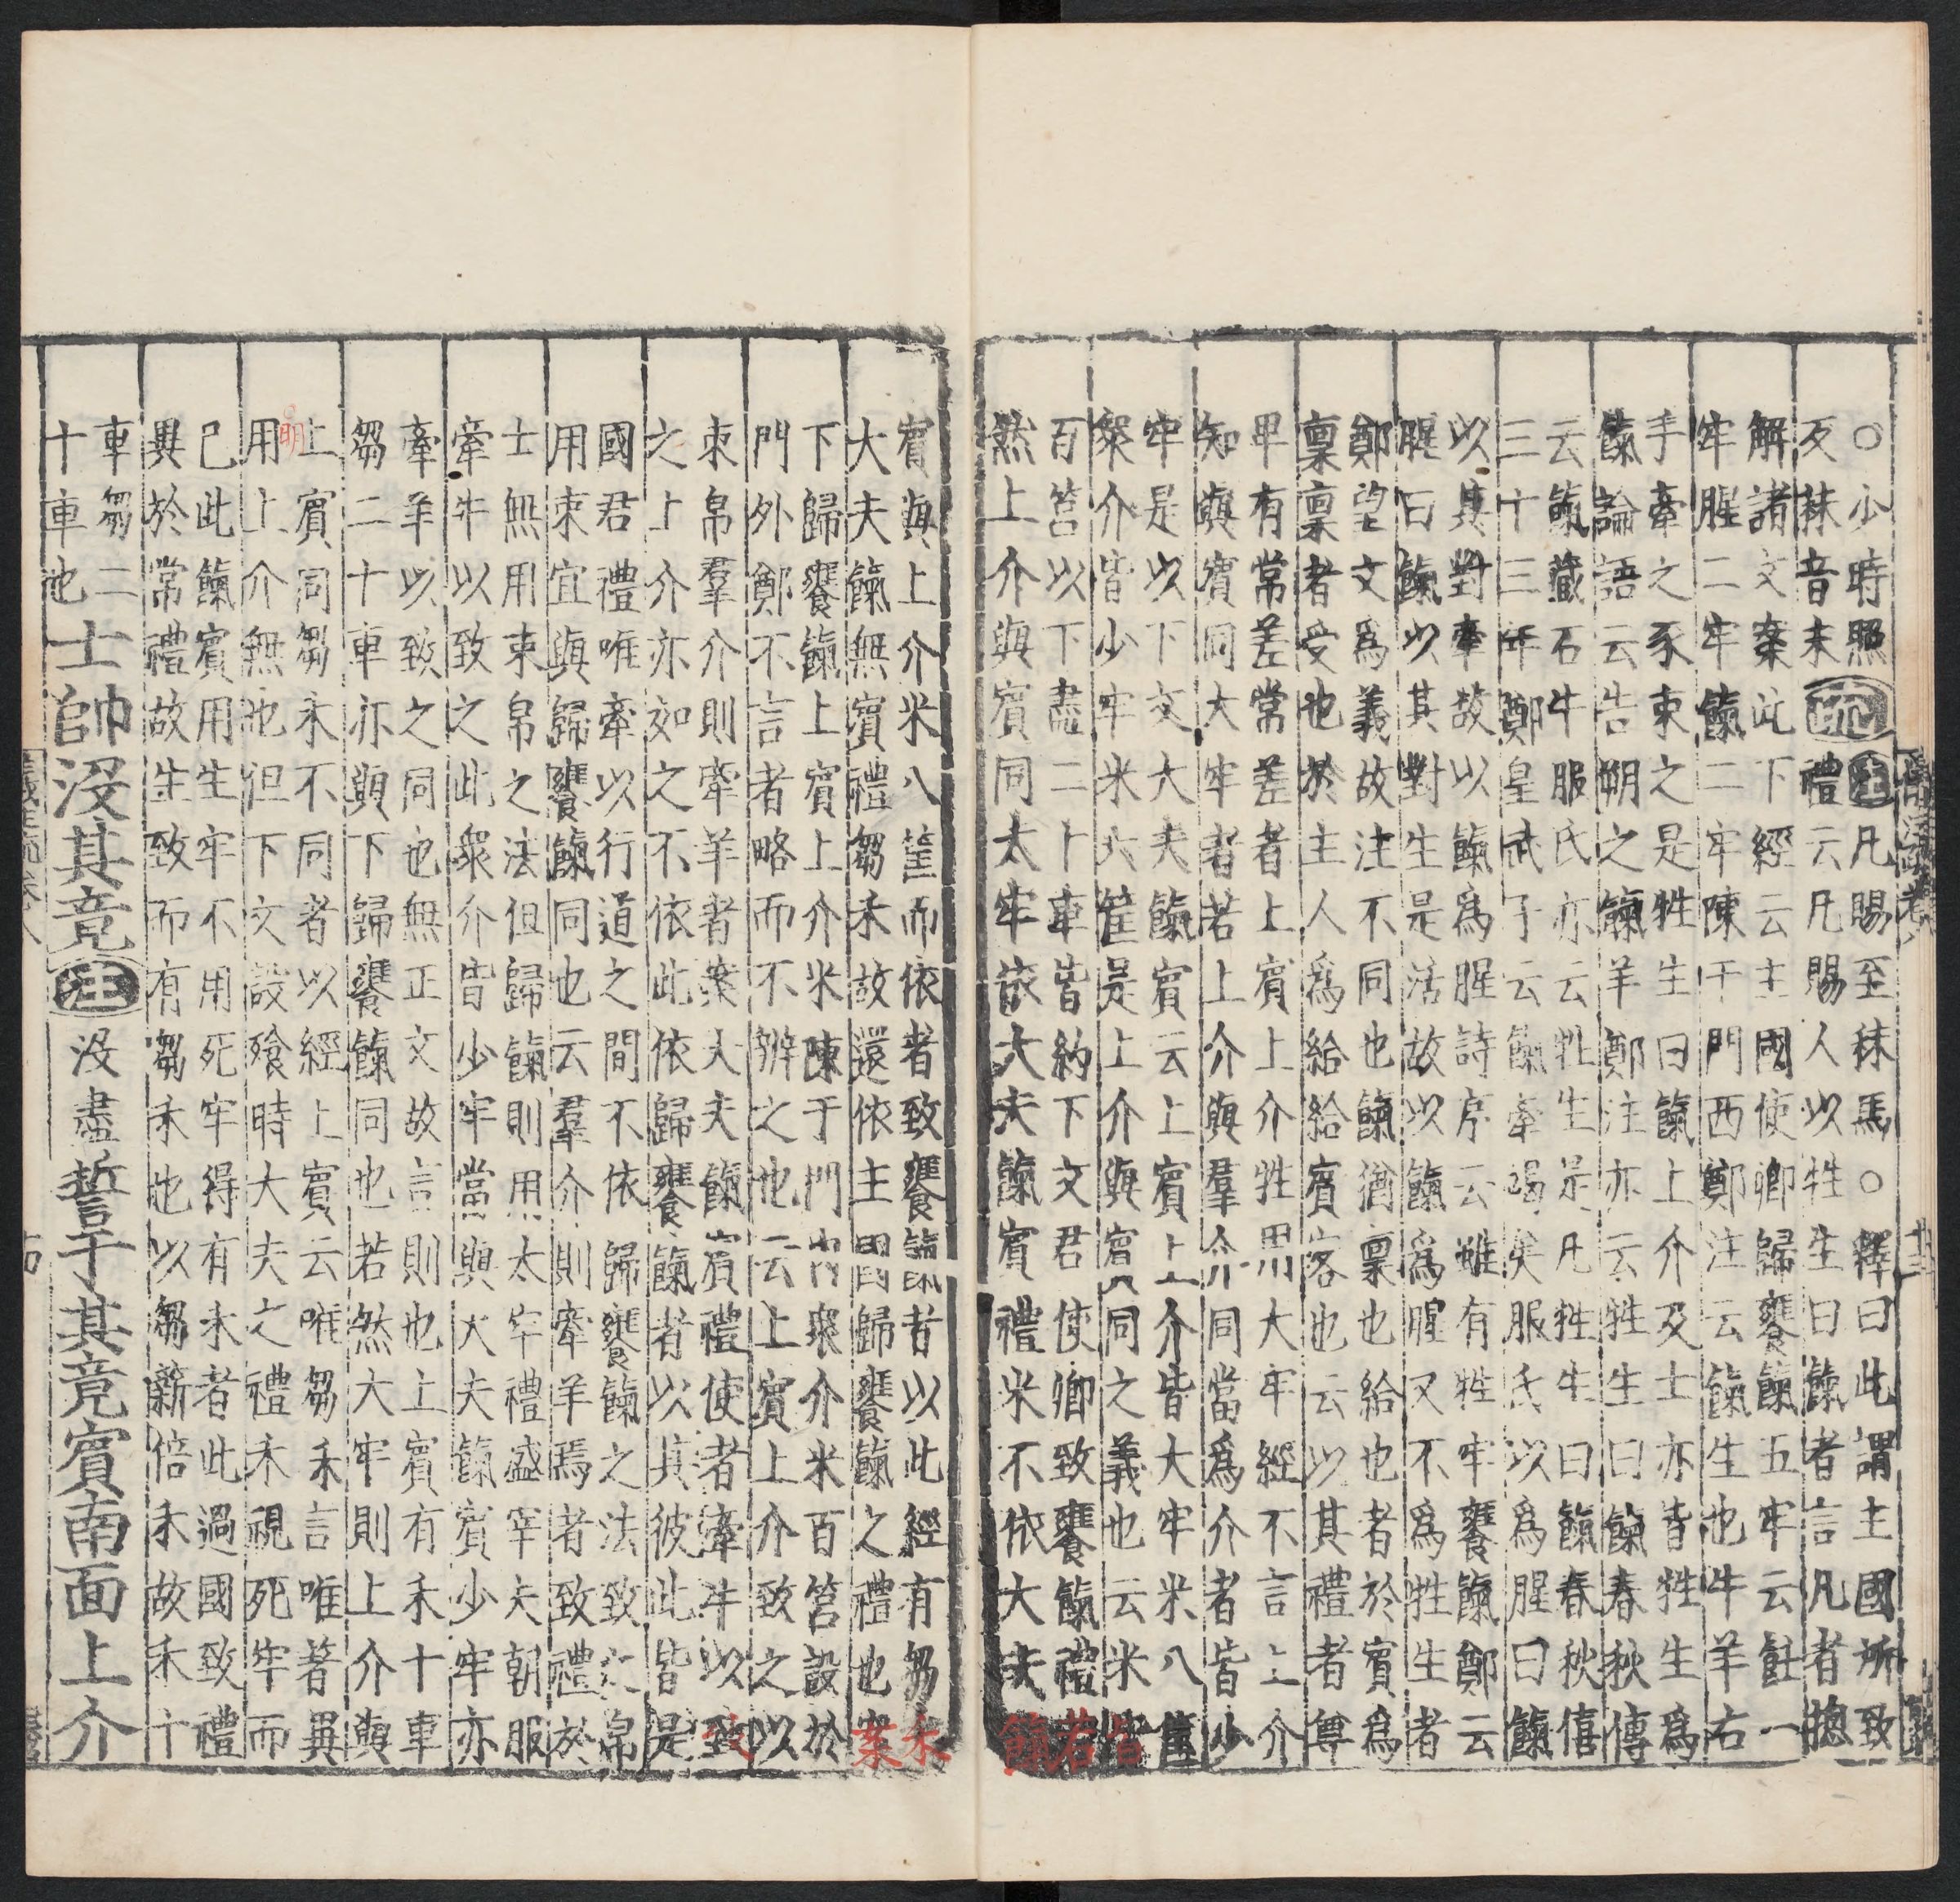 ○少時照反秣音末疏注凡賜至秣馬○釋曰此謂主國所致
禮云凡賜人以牲生曰餼者言凡者揔
解諸文案此下經云主國使卿歸饔餼五牢云飪一
牢腥二牢餼二牢陳于門西鄭注云餼生也牛羊右
手牽之豕束之是牲生曰餼上介及士亦皆牲生爲
餼論語云告朔之餼羊鄭注亦云牲生曰餼春秋傳
云餼藏石牛服氏亦云牲生是凡牲生曰餼春秋僖
三十三年鄭皇武子云餼牽竭矣服氏以爲腥曰餼
以其對牽故以餼爲腥詩序云雖有牲牢饔餼鄭云
腥曰餼以其對生是活故以餼爲腥又不爲牲生者
鄭望文爲義故注不同也餼猶稟也給也者於賓爲
稟稟者受也於主人爲給給賓客也云以其禮者尊
卑有常差常差者上賓上介牲用大牢經不言上介
知與賓同大牢者若上介與羣介同當爲介者皆少
牢是以下文大夫餼賓云上賓上介皆大牢米八筐
衆介皆少牢米六筐是上介與賓同之義也云米皆
百筥以下盡二十車皆約下文君使卿致饔餼禮若
然上介與賓同太牢依大夫餼賓禮米不依大夫餼
賓與上介米八筐而依者致饔餼者以此經有芻禾
大夫餼無賓禮芻禾故還依主國歸饔餼之禮也案
下歸饔餼上賓上介米陳于門內衆介米百筥設於
門外鄭不言者略而不辨之也云上賓上介致之以
束帛羣介則牽羊者案大夫餼賓禮使者牽牛以致
之上介亦如之不依此依歸饔餼者以其彼此皆是
國君禮唯牽以行道之間不依歸饔餼之法致之帛
用束宜與歸饔餼同也云羣介則牽羊焉者致禮於
士無用束帛之法但歸餼則用太牢禮盛宰夫朝服
牽牛以致之此衆介皆少牢當與大夫餼賓少牢亦
牽羊以致之同也無正文故言則也上賓有禾十車
芻二十車亦與下歸饔餼同也若然大牢則上介與
上賓同芻禾不同者以經上賓云唯芻禾言唯著異
用上介無也但下文設飱時大夫之禮禾視死牢而
已此餼賓用生牢不用死牢得有禾者此過國致禮
異於常禮故生致而有芻禾也以芻薪倍禾故禾十
車芻二十車也
士帥沒其竟注沒盡誓于其竟賓南面上介
明